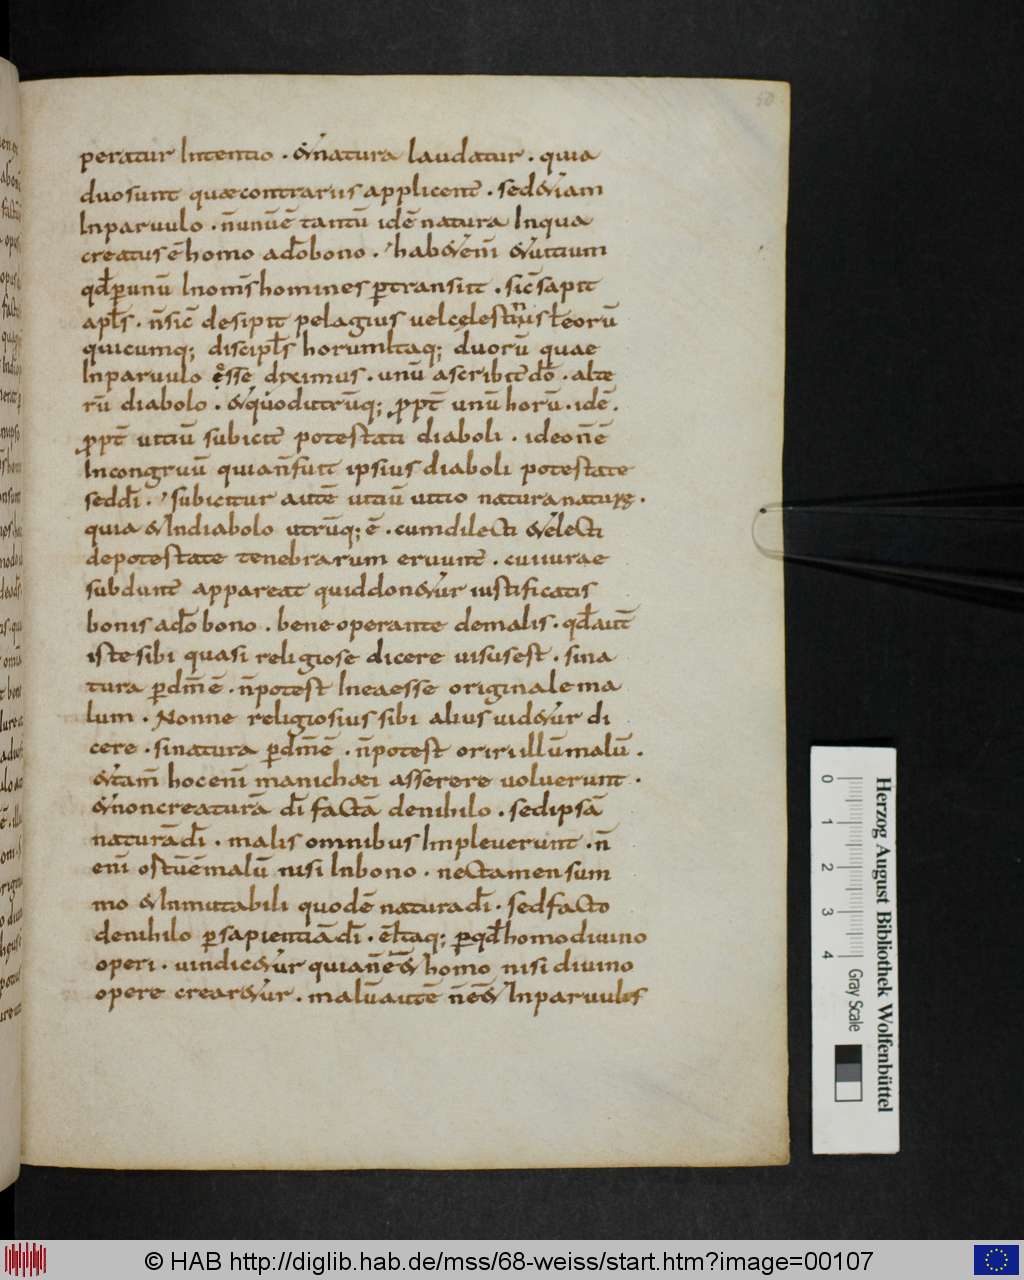 peratur Intentio . & natura laudatur . quia
duo sunt quae contrariis applicent̄ . sed & iam
In paruulo . n̄ unū ē tantū idē natura In qua
creatus ē homo a dō bono . habet eni & uitium
qd̄ p unū In om̄s homines ptransiit . sic̄ sapit
apl̄s . n̄ sic̄ desipit pelagius uel celestius l̄ eorū
quicumq; discipl̄s horum Itaq; duorū quae
In paruulo esse diximus . unū ascribit dō . alte
rū diabolo . & quod utrūq; , ppt̄ unū horū . idē .
ppt̄ uitiū subicit̄ potestati diaboli . ideo n̄ ē
Incongruū quia n̄ fuit ipsius diaboli potestate
sed dī . subicitur autē uitiū uitio natura naturę .
quia & In diabolo utrūq; ē . cum dilecti & electi
de potestate tenebrarum eruunt̄ . cui iurae
subdunt̄ appareat quid donetur iustificatis
bonis a dō bono . bene operante de malis . qd̄ aut̄
iste sibi quasi religiose dicere uisus est . si na
tura p dm̄ ē . n̄ potest In ea esse originale ma
lum . Nonne religiosius sibi alius uidetur di
cere . si natura p dm̄ ē . n̄ potest oriri illū malū .
& tam̄ hoc enī manichaei asserere uoluerunt .
& non creaturā dī factā de nihilo . sed ipsā
naturā dī . malis omnibus Impleuerunt . n̄
enī ostūē malū nisi In bono . nec tamen sum
mo & Inmutabili quod ē natura dī . sed facto
de nihilo p sapientiā dī . ē Itaq; p qd̄ homo diuino
operi . uindicetur quia n̄ eēt homo nisi diuino
opere crearetur . malū autē n̄ eēt In paruulis
Herzog August Bibliothek Wolfenbüttel
0 1 2 3 4 Gray Scale
© HAB http://diglib.hab.de/mss/68-weiss/start.htm?image=00107